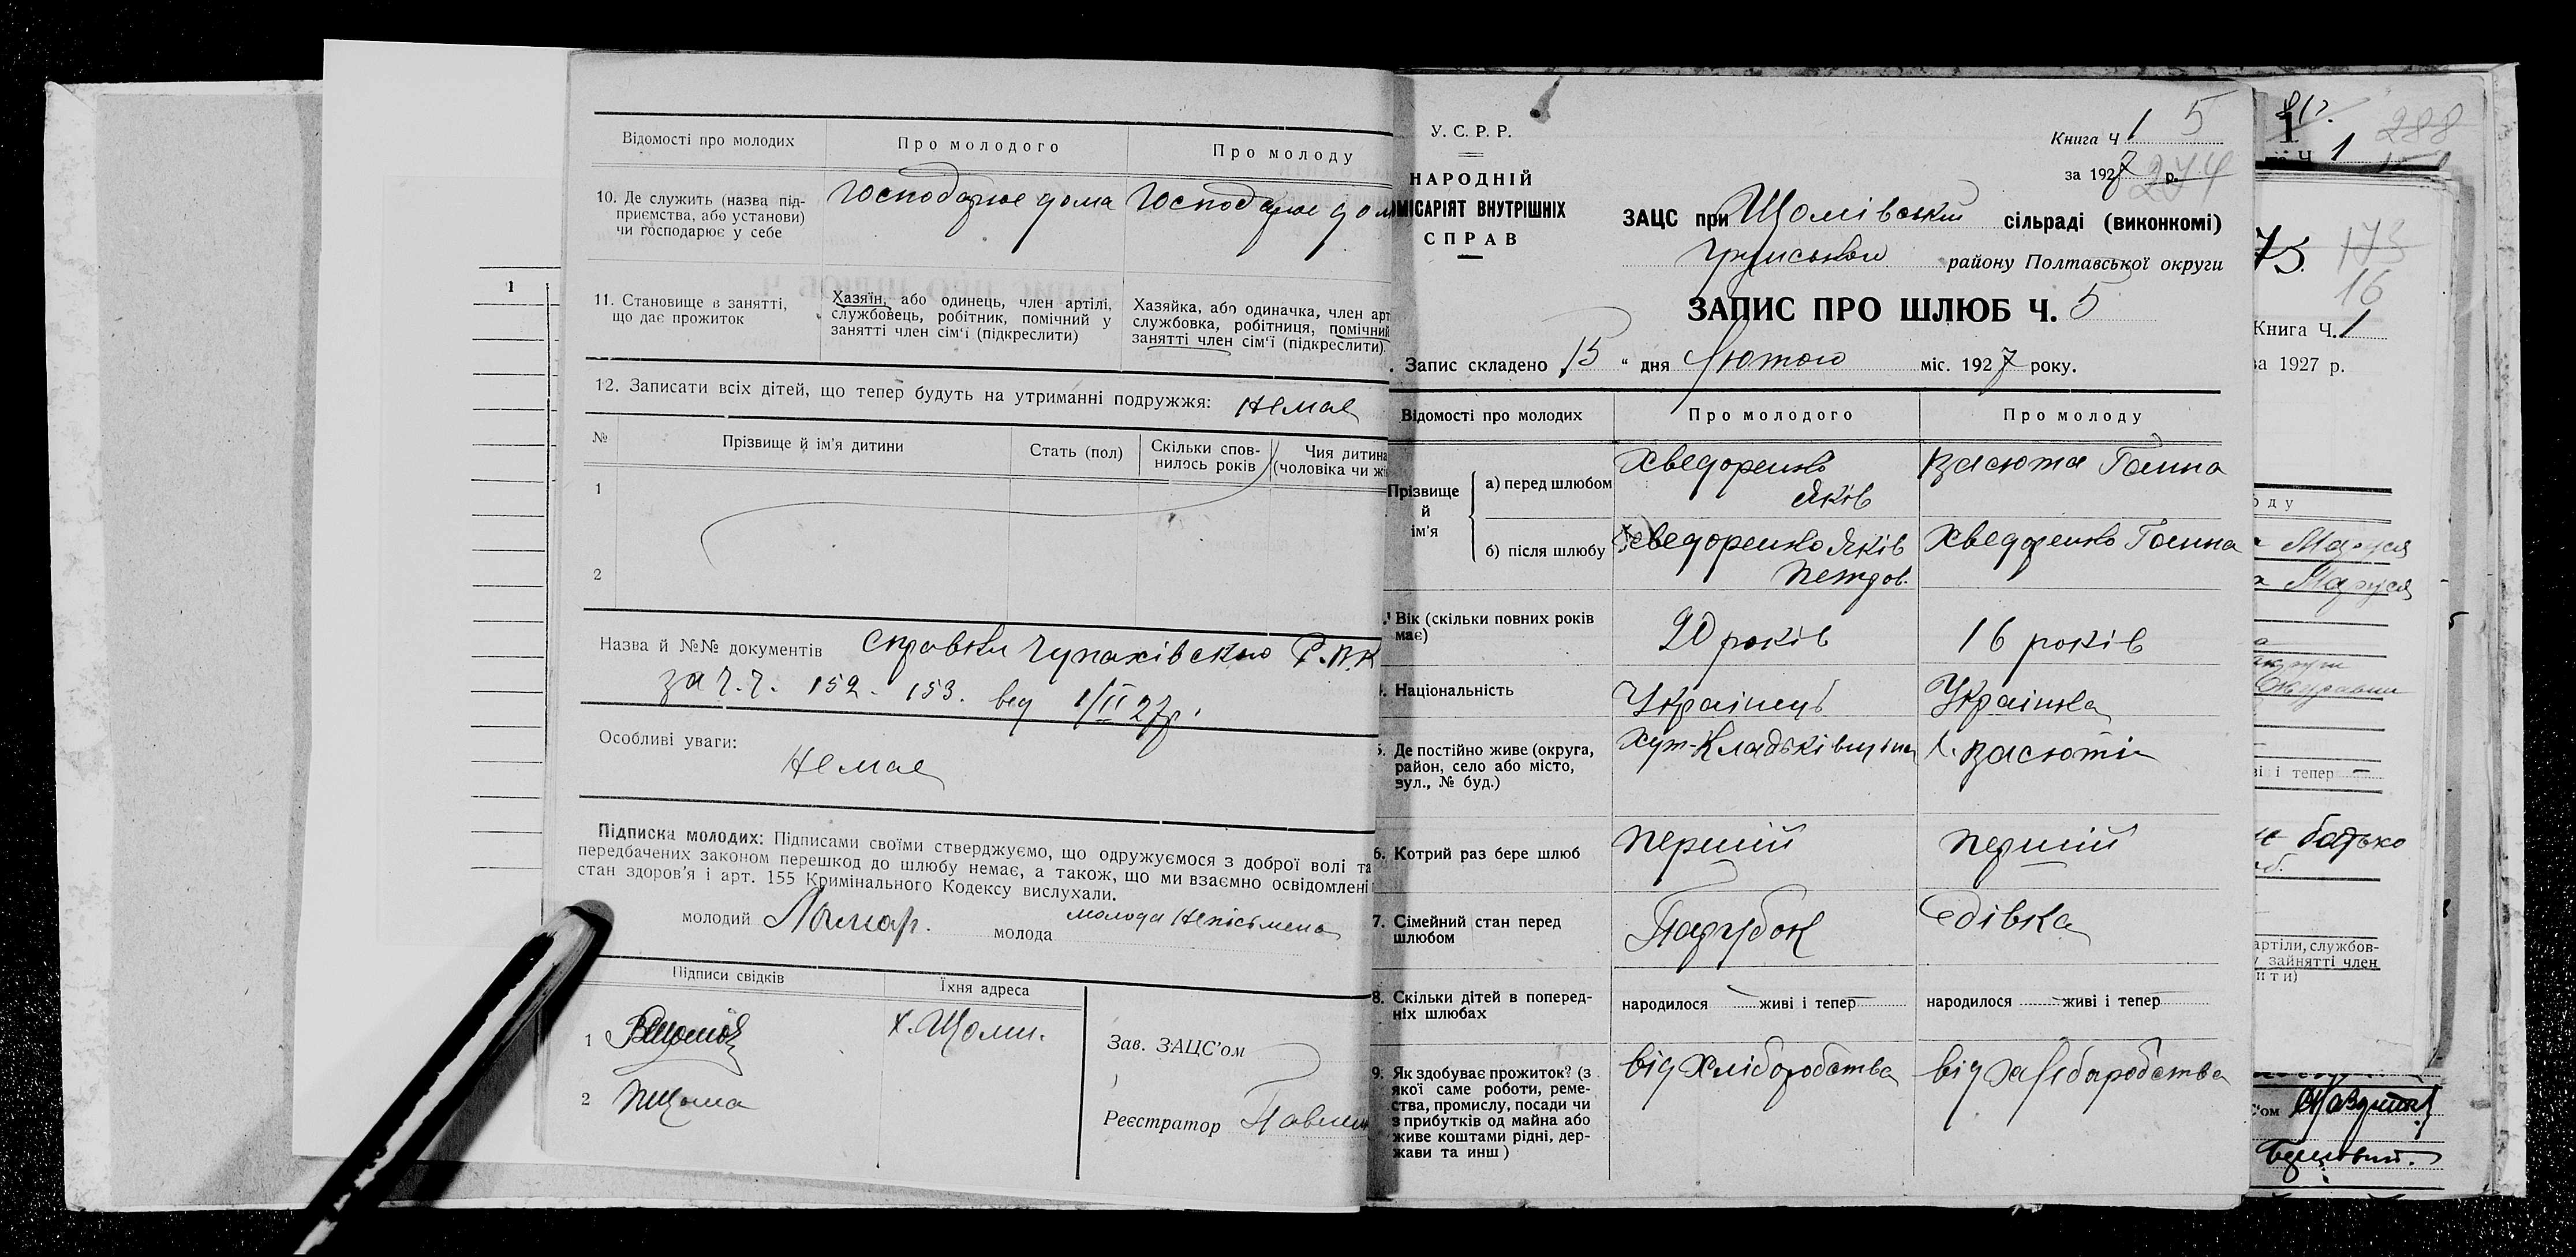 Відомості про молодих
Про молодого
Про молоду
10. Де служить (назва під-
приємства, або установи)
чи господарює у себе
Господарює дома
Господарює дом
11. Становище в занятті,
що дає прожиток
Хазяїн, або одинець, член артілі,
службовець, робітник, помічний у
занятті член сім'ї (підкреслити)
Хазяйка, або одиначка, член арт
службовка, робітниця, помічний
занятті член сім'ї (підкреслити).
12. Записати всіх дітей, що тепер будуть на утриманні подружжя: Немає
№
Прізвище й ім'я дитини
Стать (пол)
Скільки спов-
нилось років
Чия дитина
(чоловіка чи жі
1
2
Назва й №№ документів Справки Чупахівского Р.В.К
за ч.ч. 152. 153. від 1/II 27р.
Особливі уваги:
Немає
Підписка молодих: Підписами своїми стверджуємо, що одружуємося з доброї волі та
передбачених законом перешкод до шлюбу немає, а також, що ми взаємно освідомлені
стан здоров'я і арт. 155 Кримінального Кодексу вислухали.
молодий
молода молода Непісьмена
Підписи свідків
Їхня адреса
1
х. Щоми.
2 ПЩома
Зав. ЗАЦС'ом
Реєстратор
1
У. С. Р. Р.
НАРОДНІЙ
МІСАРІЯТ ВНУТРІШНІХ
СПРАВ
Книга Ч 1 5
за 1927 р. 274
ЗАЦС при Щомівській сільраді (виконкомі)
району Полтавської округи
ЗАПИС ПРО ШЛЮБ Ч. 5
Запис складено 15 " дня Лютого міс. 1927 року.
Відомості про молодих
Про молодого
Про молоду
Прізвище
й
ім'я
а) перед шлюбом
Хведоренко
Яків
Васюта Ганна
б) після шлюбу
Хведоренко Яків
Петров.
Хведоренко Ганна
Вік (скільки повних років
має)
20 років
16 років
Національність
Українець
Українка
5. Де постійно живе (округа,
район, село або місто,
вул., № буд.)
Хут-Кладьківщина
х. Васюти
6. Котрий раз бере шлюб
перший
перший
7. Сімейний стан перед
шлюбом
Парубок
Дівка
8. Скільки дітей в поперед-
ніх шлюбах
народилося - живі і тепер -
народилося - живі і тепер -
9. Як здобуває прожиток? (з
якої саме роботи, реме-
ства, промислу, посади чи
з прибутків од майна або
живе коштами рідні, дер-
жави та инш)
від Хліборобства
від Хліборобства
Ч 1
288
75.
173
16
Книга Ч. 1
за 1927 р.
оду
Маруся
Маруся
ві і тепер -
батько
артіли, службов-
у зайнятті член
ити)
С'ом